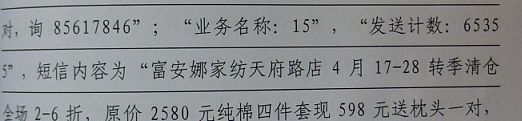 对，询 85617846”；“业务名称：15”，“发送计数：6535
5”，短信内容为“富安娜家纺天府路店 4 月 17-28 转季清仓
全场 2-6 折，原价 2580 元纯棉四件套现 598 元送枕头一对，